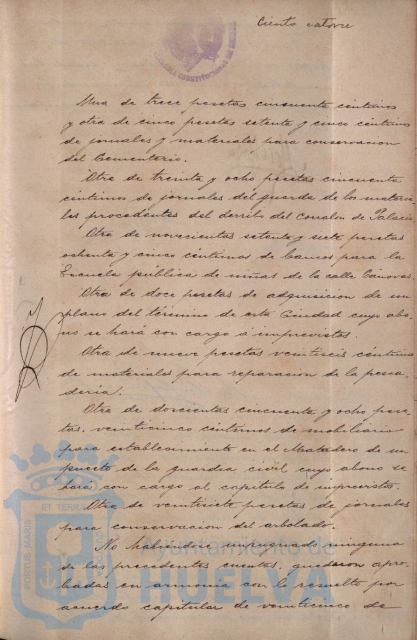 Ciento catorce
Una de trece pesetas cincuenta céntimos
y otra de cinco pesetas setenta y cinco céntimos
de jornales y materiales para conservacion
del Cementerio.
Otra de treinta y ocho pesetas cincuenta
céntimos de jornales del guarda de los materia
les procedentes del derribo del Corralon de Palacio
Otra de novecientas setenta y siete pesetas
ochenta y cinco céntimos de bancos para la
Escuela pública de niñas de la calle Cánovas.
Otra de doce pesetas de adquisicion de un
plano del término de esta Ciudad cuyo abo-
no se hará con cargo a imprevistos.
Otra de nueve pesetas veintiseis céntimos
de materiales para reparacion de la pesca-
dería.
Otra de doscientas cincuenta y ocho pese
tas, veinticinco céntimos de mobiliario
para establecimiento en el Matadero de un
puesto de la guardia civil cuyo abono se
hará con cargo al capítulo de imprevistos.
Otra de veintisiete pesetas de jornales
para conservacion del arbolado.
No habiendo impugnado ninguna
de las precedentes cuentas, quedaron apro-
badas en armonía con lo resuelto por
acuerdo capitular de veinticinco de
PORTUS MARIS ET TERRÆ
Ayuntamiento de
HUELVA